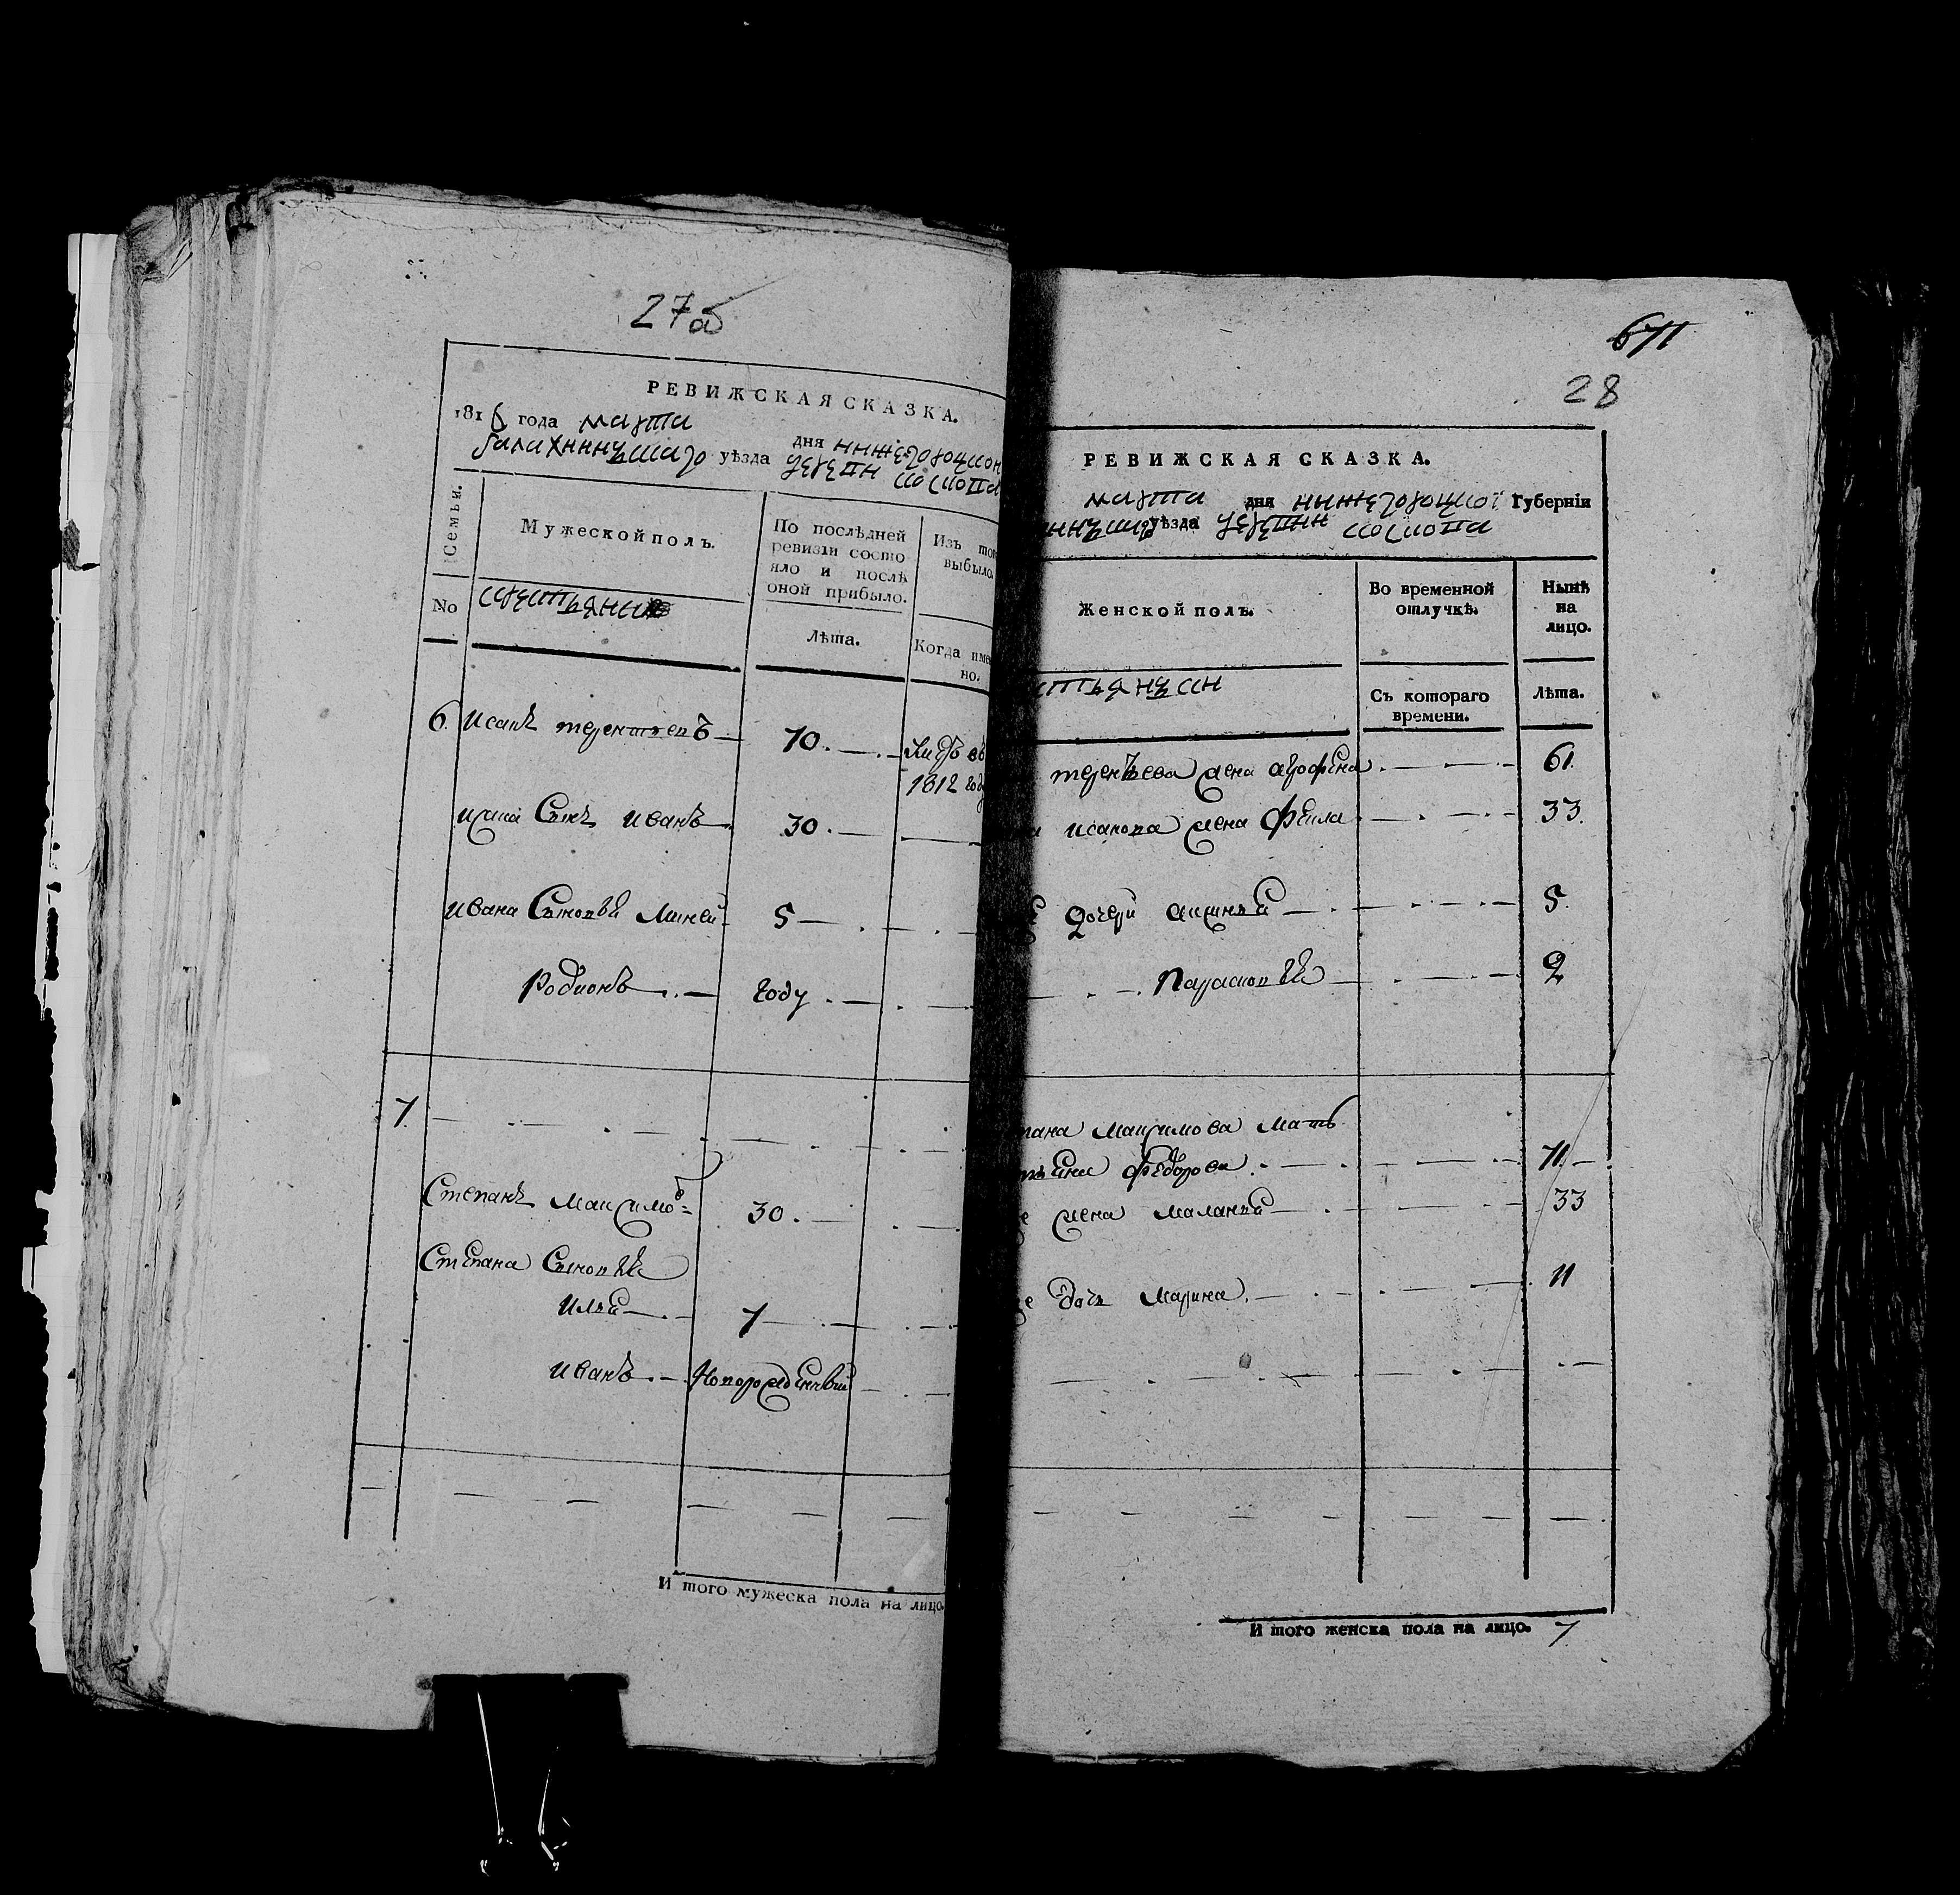 27об
РЕВИЖСКАЯ СКАЗКА.
1816 года марта дня нижегородской
балахнинскаго уѣзда
Семьи.
No
Мужеской полъ.
крестьяния
По послѣдней
ревизіи состо
яло и послѣ
оной прибыло.
Лѣта.
Изъ того
выбыло.
Когда име
но.
6 исакъ терентьевъ 70.
1812 году
исака Сынъ иванъ 30.
ивана Сыновья Миней 5
Родионъ году
7.
Степанъ максимовъ 30.
Степана Сыновья
илья 7
иванъ Новорожденный
И того мужеска пола на лицо.
671
28
РЕВИЖСКАЯ СКАЗКА.
марта дня нижегородской Губерніи
уѣзда
Женской полъ.
Во временной
отлучкѣ.
Съ котораго
времени.
Нынѣ
на
лицо.
Лѣта.
терентьева жена агрофена 61.
исакова жена Фекла 33.
дочери аксинья 5.
Парасковья 2
максимова мать
федорова 71
жена маланья 33
дочь Марина. 11
И того женска пола на лицо. 7